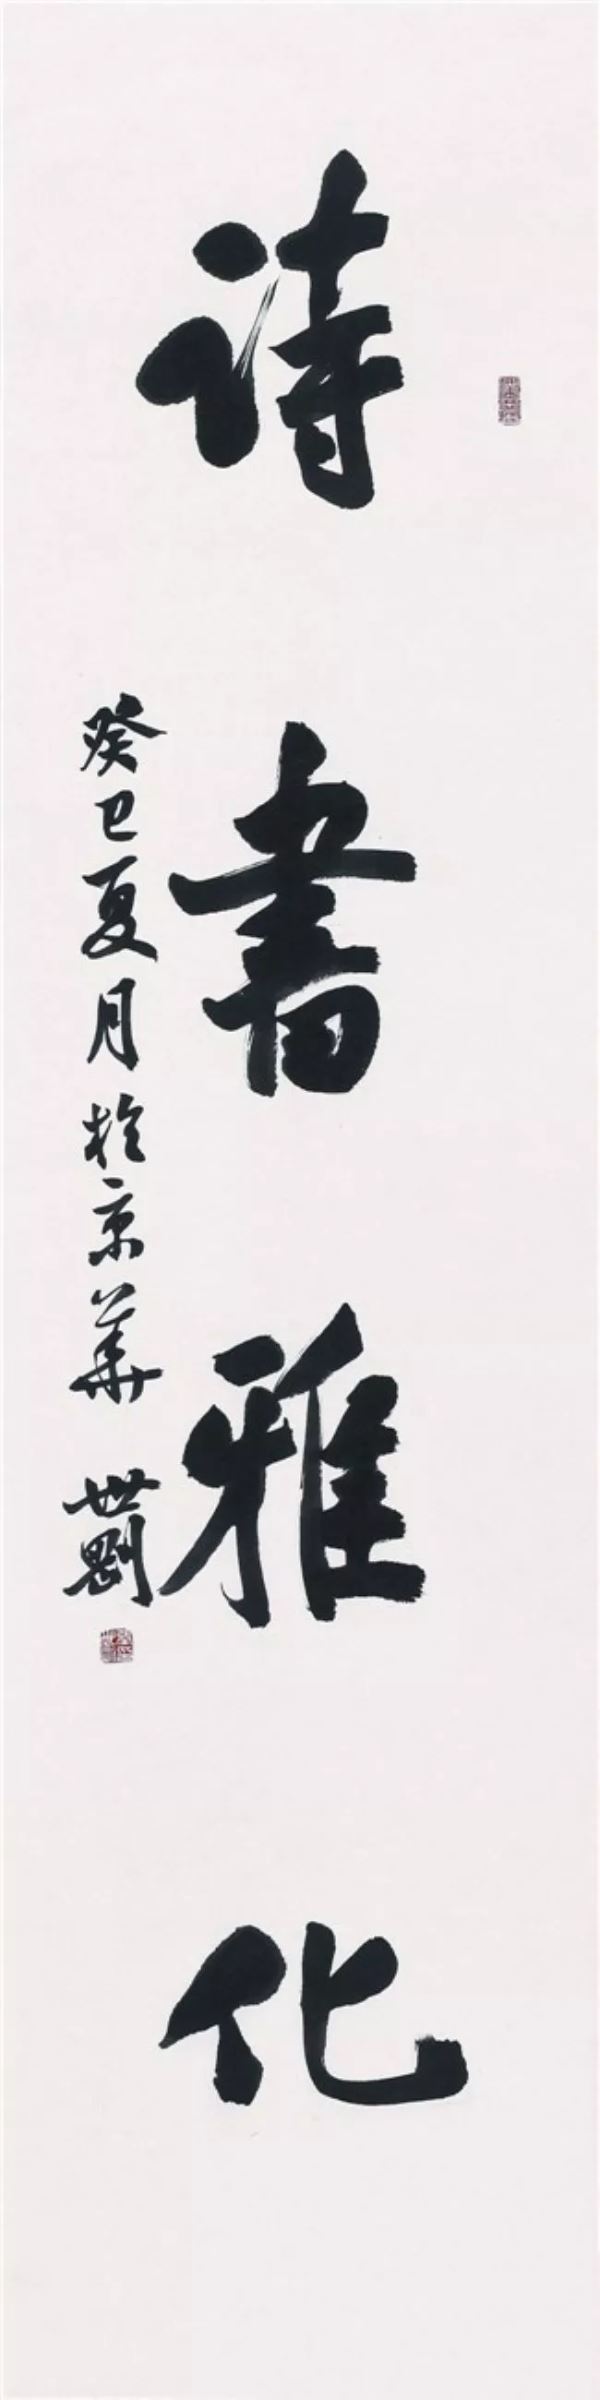 詩書雅化
癸巳夏月於京華 世剛